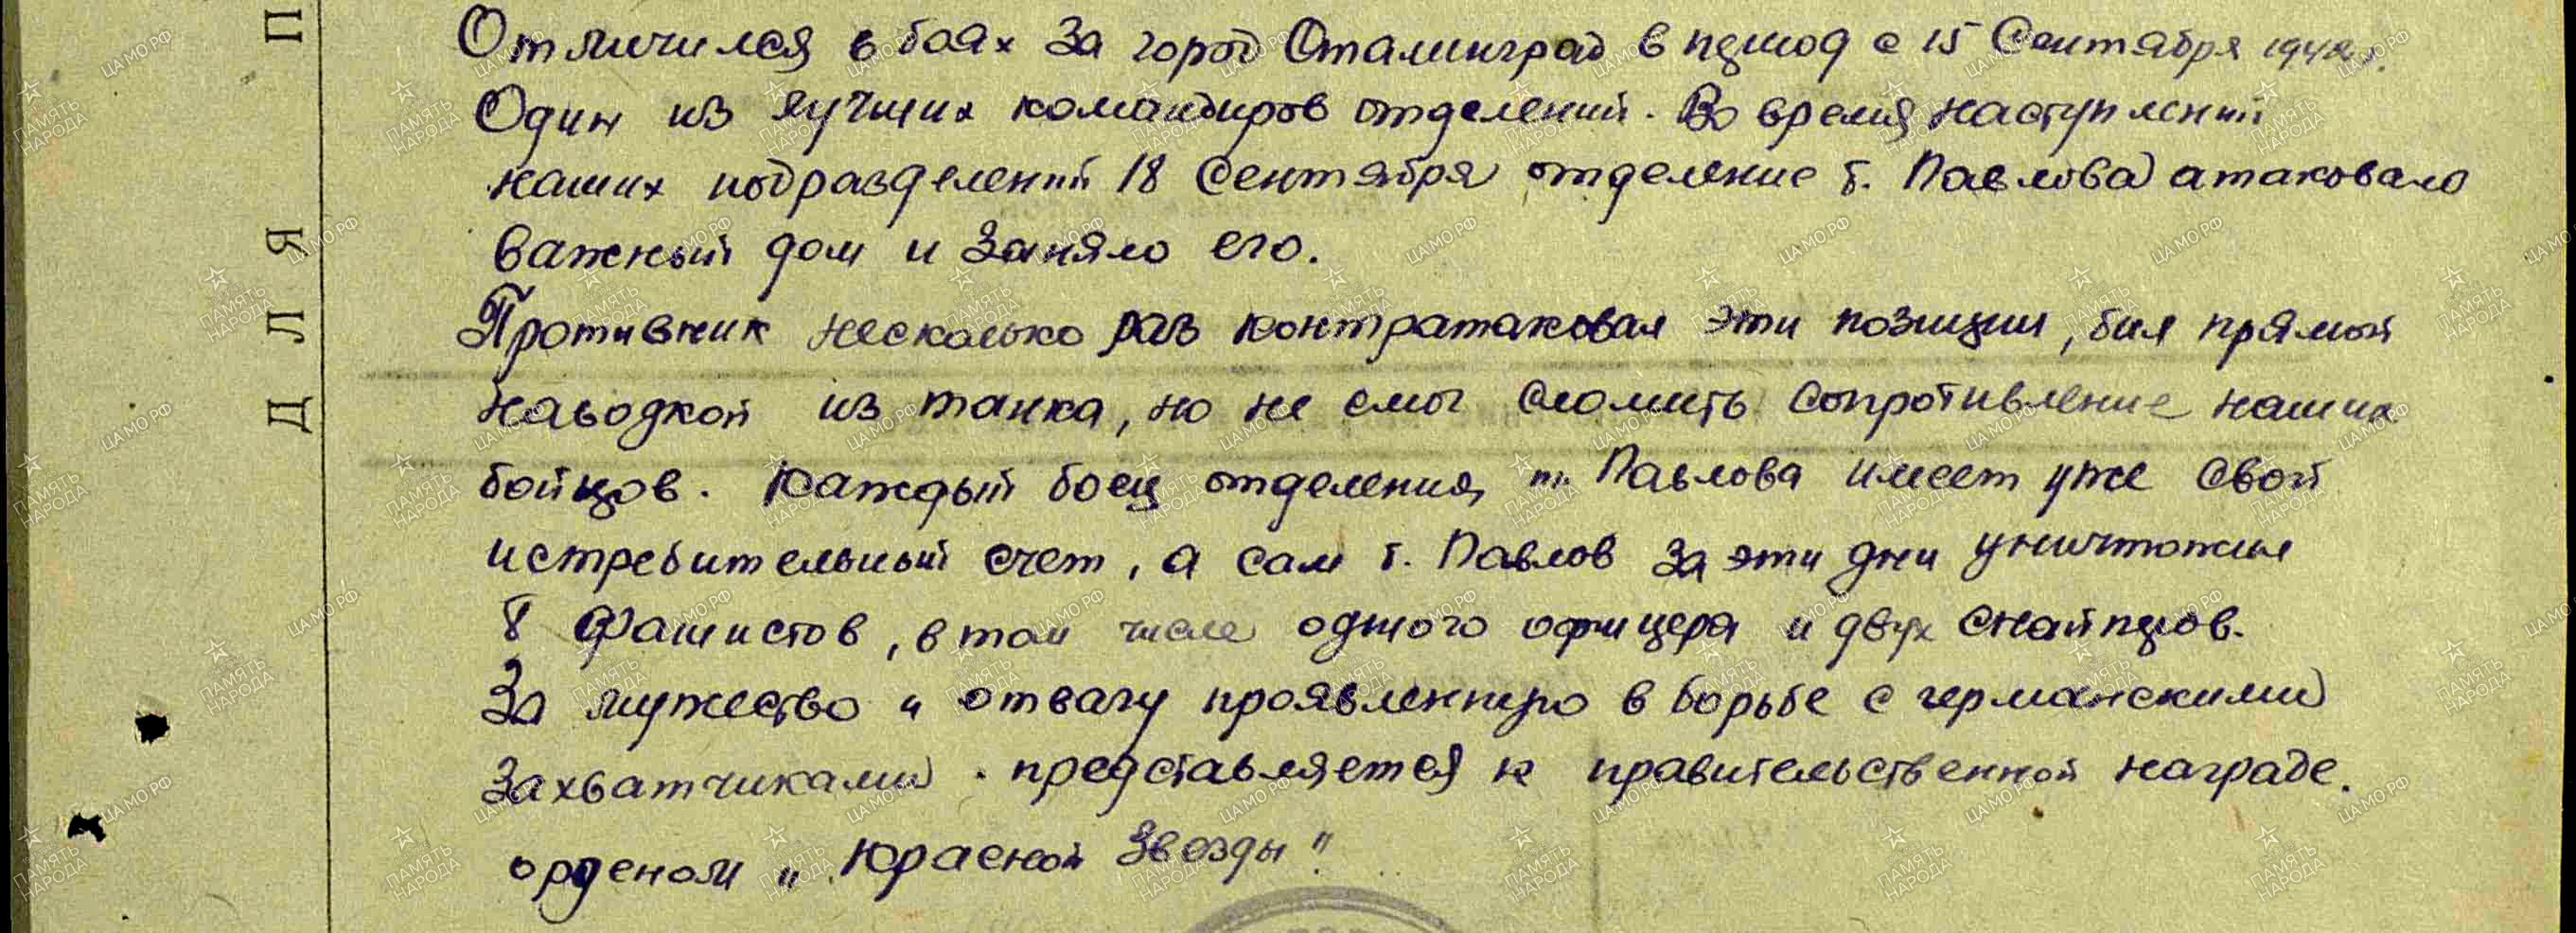 Отличился в боях за город Сталинград в период с 15 Сентября 1942 г.
Один из лучших командиров отделений. Во время наступлений
наших подразделений 18 Сентября отделение т. Павлова атаковало
важный дом и заняло его.
Противник несколько раз контратаковал эти позиции, бил прямой
наводкой из танка, но не смог сломить сопротивление наших
бойцов. Каждый боец отделения т. Павлова имеет уже свой
истребительный счет, а сам т. Павлов за эти дни уничтожил
8 фашистов, в том числе одного офицера и двух снайперов.
За мужество и отвагу проявленную в борьбе с германскими
захватчиками. представляется к правительственной награде.
орденом „Красной Звезды"
Д Л Я П
ПАМЯТЬ НАРОДА
ЦАМО.РФ